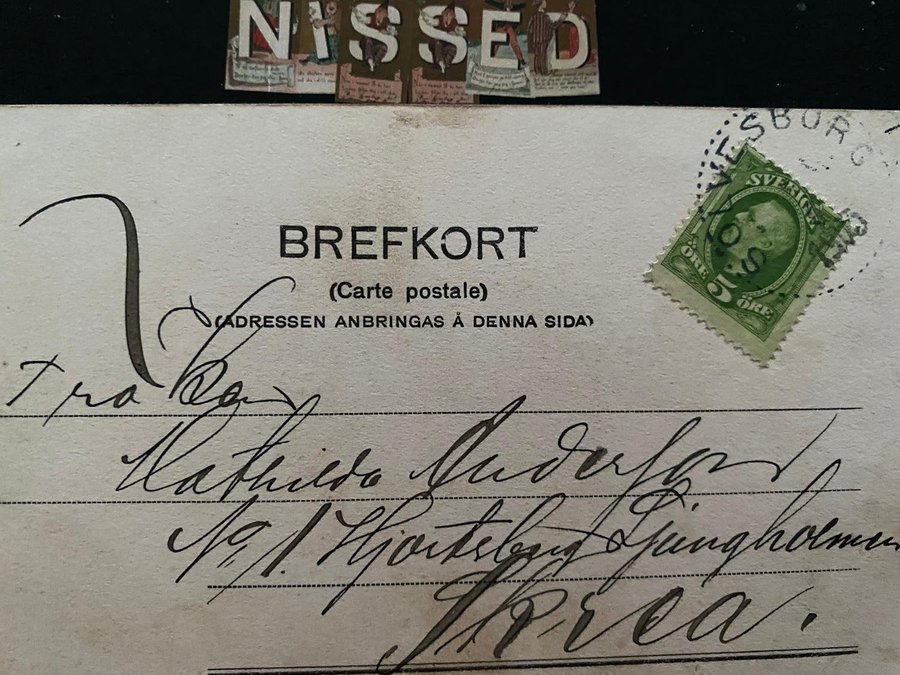 NISSED
BREFKORT
(Carte postale)
(ADRESSEN ANBRINGAS Å DENNA SIDA)
SVERIGE
ÖRE 5 ÖRE
Mathilda Anderson
No. 1. Hjortsberg Ljungholmen
Skrea.